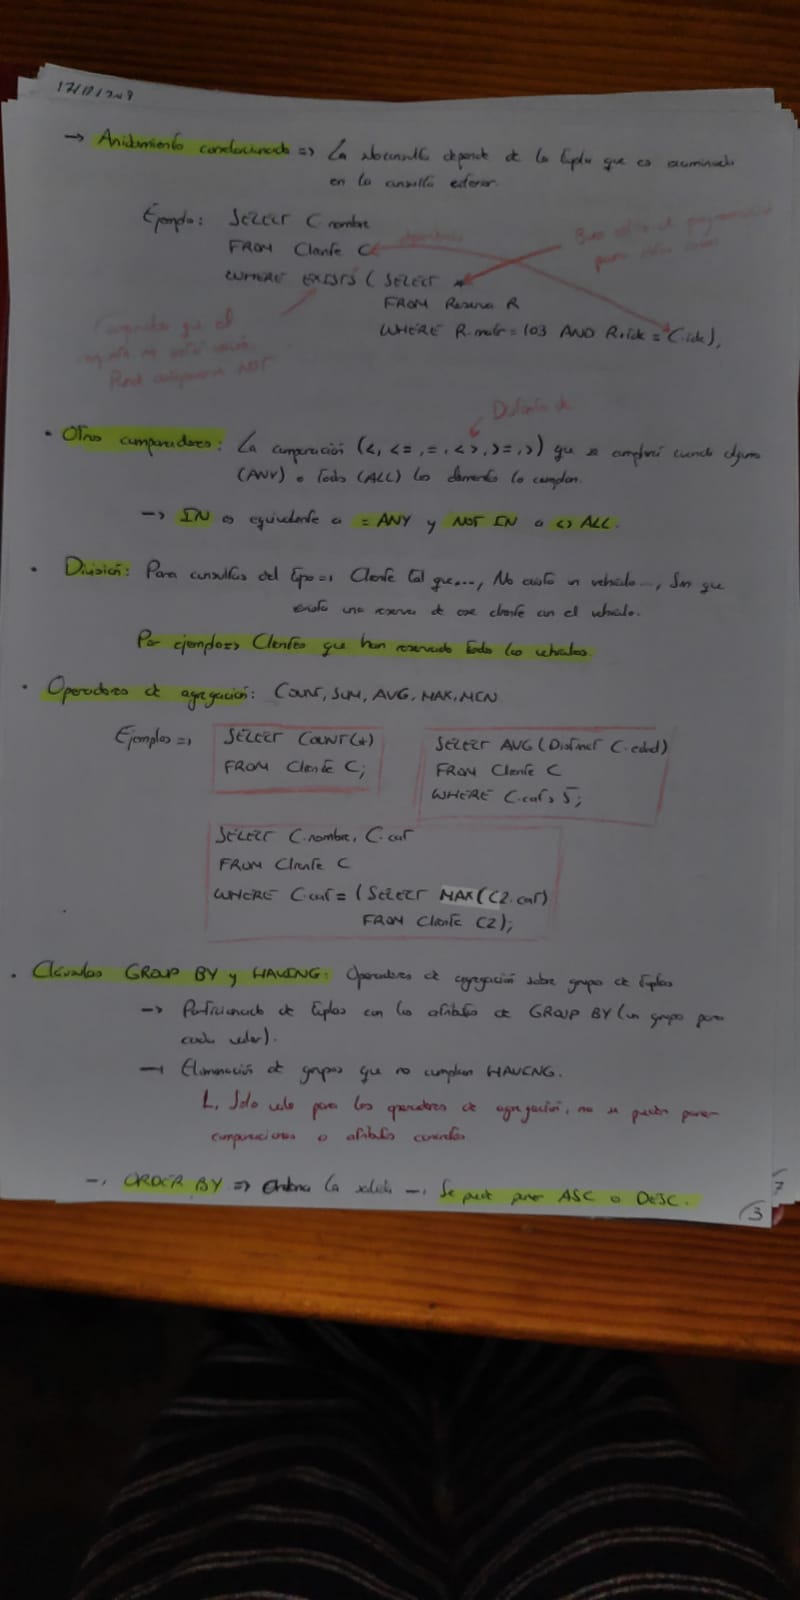 17/12/2019
→ Anidamiento correlacionado => La subconsulta depende de la tupla que es examinada
en la consulta exterior.
Ejemplo: SELECT C.nombre
FROM Cliente C
WHERE EXISTS ( SELECT *
FROM Reserva R
WHERE R.matr = 103 AND R.idc = C.idc);
dependencia
Buen estilo de programación
para estos casos
Comprueba que el
conjunto no está vacío.
Puede NOT
Distinto de
• Otros comparadores: La comparación (<, <=, =, <>, >=, >) que se cumplirá cuando alguno
(ANY) o todos (ALL) los elementos lo cumplan.
→ IN es equivalente a = ANY y NOT IN a <> ALL.
• División: Para consultas del tipo => Cliente tal que..., No exista un vehículo..., Sin que
exista una reserva de ese cliente con el vehículo.
Por ejemplo => Clientes que han reservado todos los vehículos.
• Operadores de agregación: COUNT, SUM, AVG, MAX, MIN
Ejemplos =>
SELECT COUNT(*)
FROM Cliente C;
SELECT AVG (Distinct C.edad)
FROM Cliente C
WHERE C.cat > 5;
SELECT C.nombre, C.cat
FROM Cliente C
WHERE C.cat = (SELECT MAX(C2.cat)
FROM Cliente C2);
• Cláusulas GROUP BY y HAVING: Operadores de agregación sobre grupos de tuplas
→ Particionado de tuplas con los atributos de GROUP BY (un grupo para
cada valor).
→ Eliminación de grupos que no cumplen HAVING.
↳ Solo vale para los operadores de agregación, no se pueden poner
comparaciones o atributos
→ ORDER BY => Ordena la salida → Se puede poner ASC o DESC.
7
3